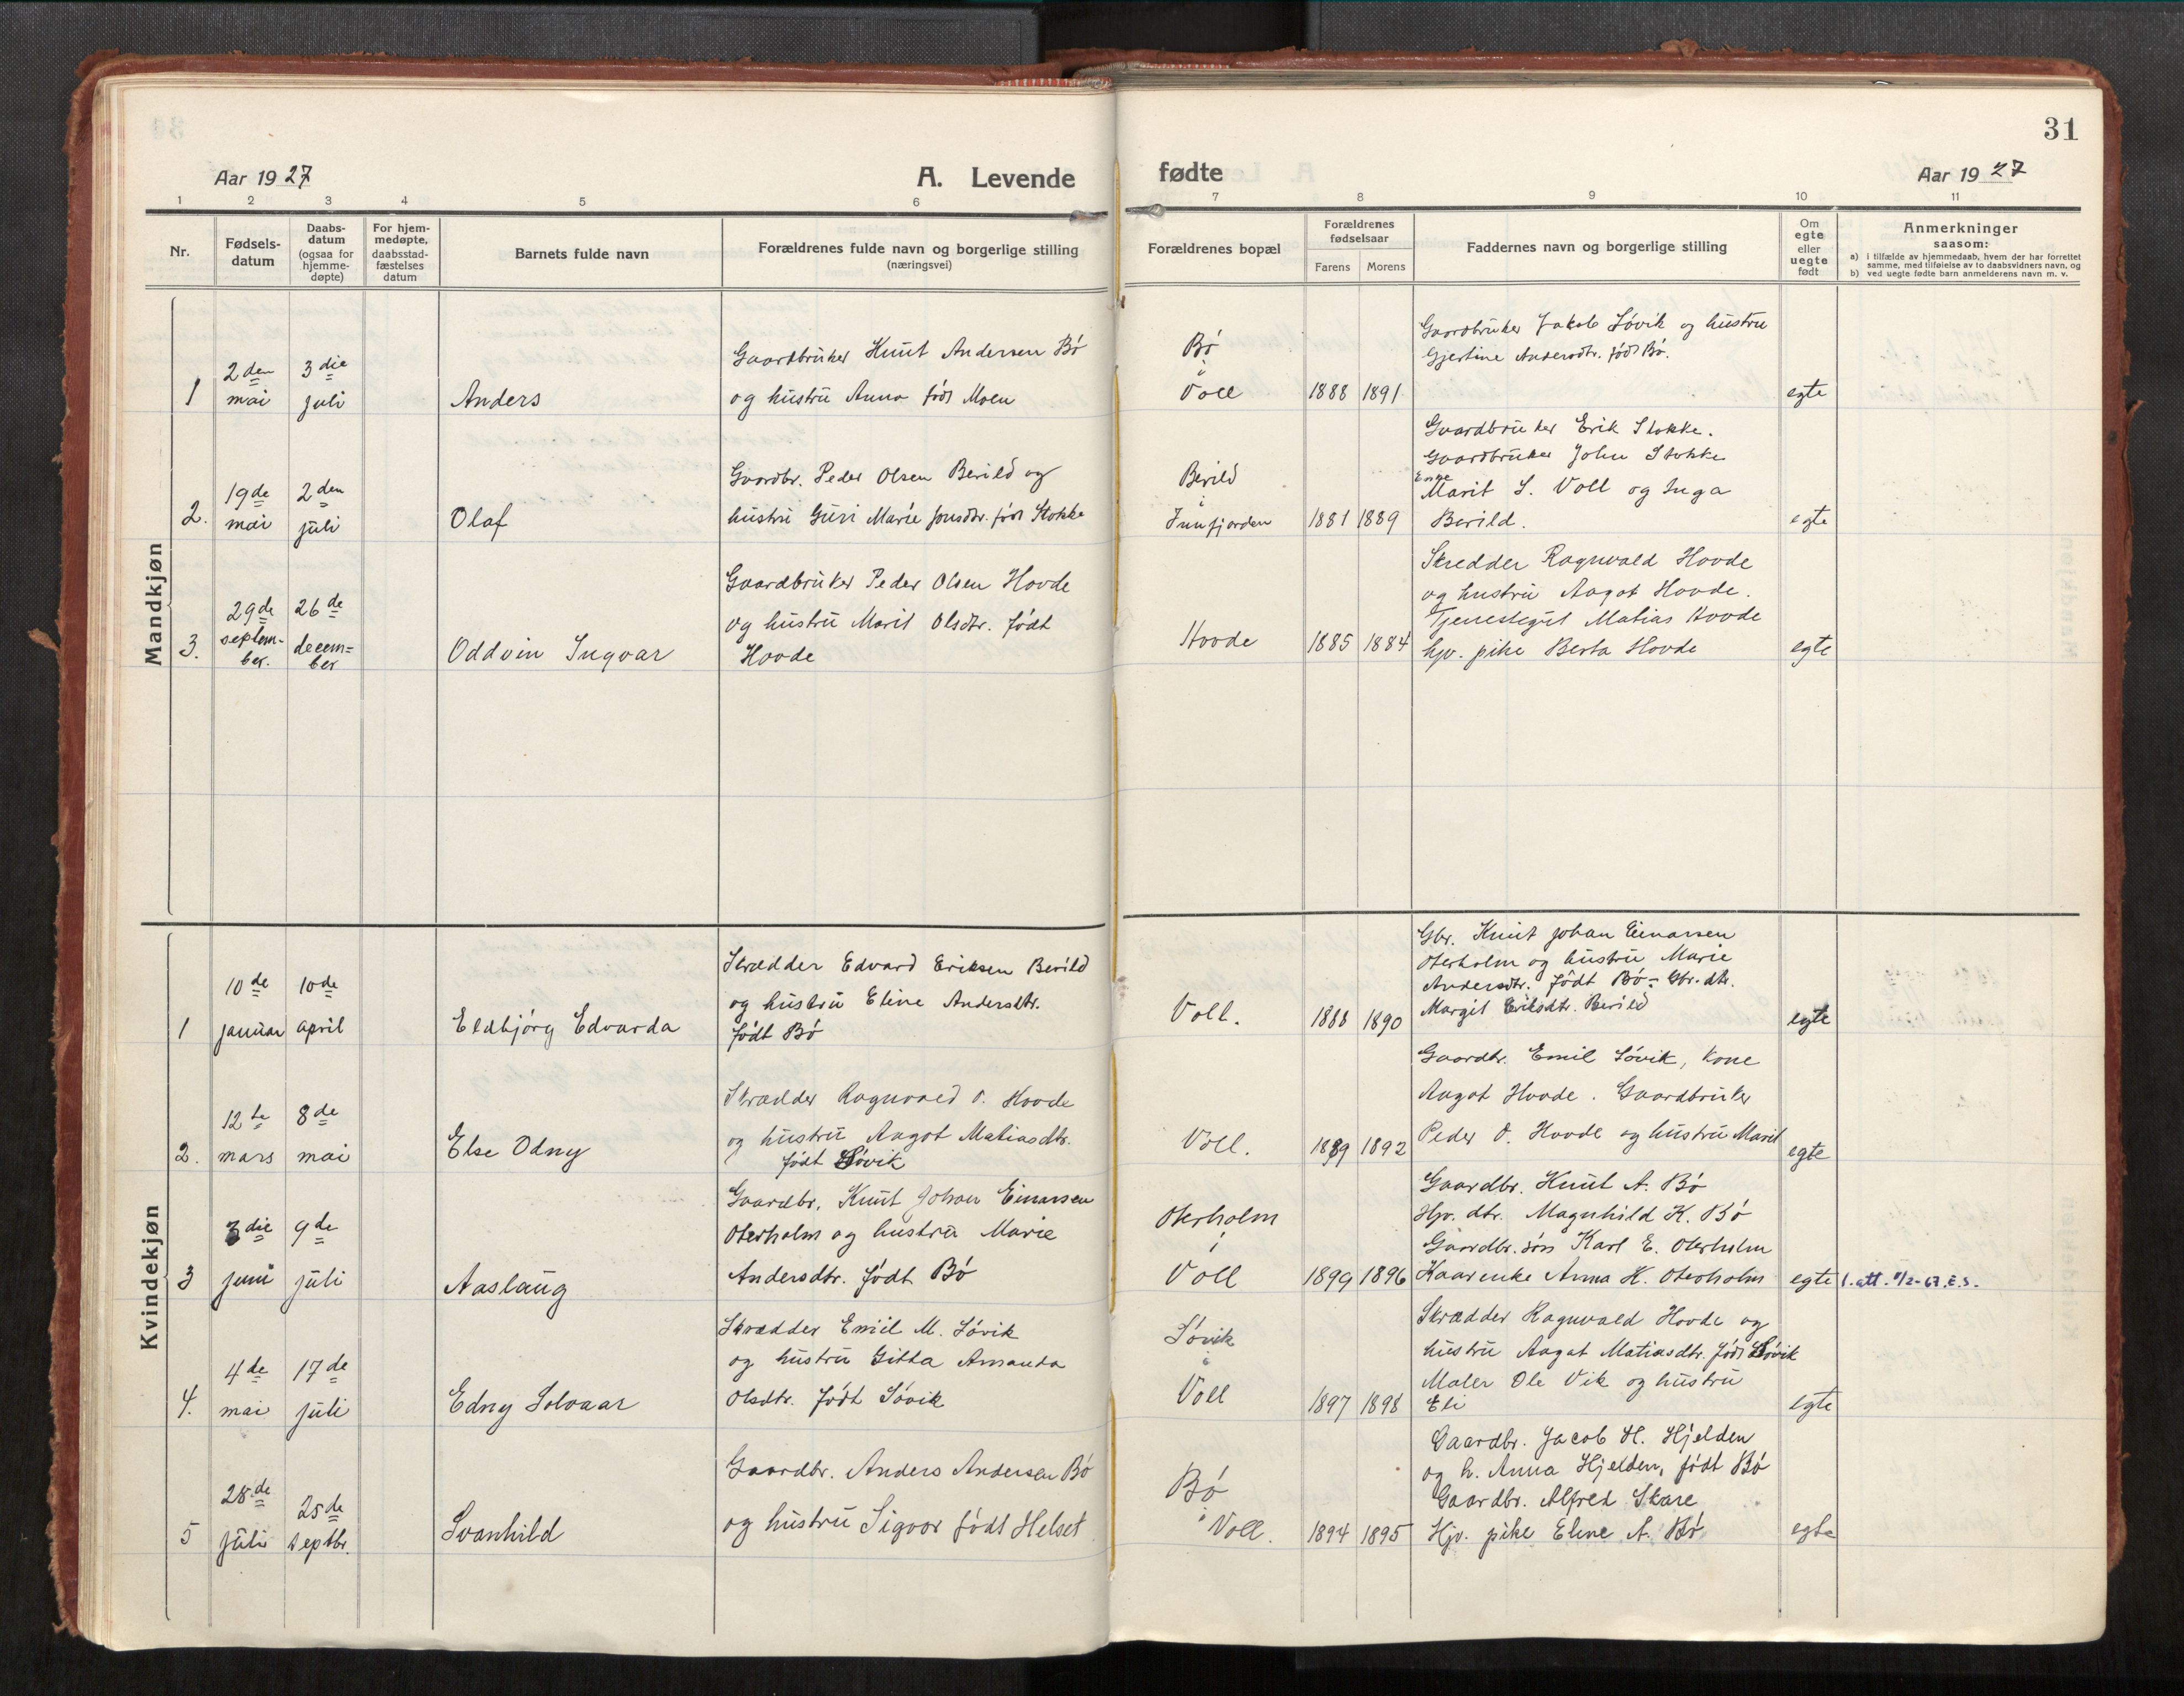 31
Aar 1927
A. Levende
fødte
Aar 1927
1 2 3 4 5 6 7 8 9 10 11
Nr.
Fødsels-
datum
Daabs-
datum
(ogsaa for
hjemme-
døpte)
For hjem-
medøpte,
daabsstad-
fæstelses
datum
Barnets fulde navn
Forældrenes fulde navn og borgerlige stilling
(næringsvei)
Forældrenes bopæl
Forældrenes
fødselsaar
Farens Morens
Faddernes navn og borgerlige stilling
Om
egte
eller
uegte
født
Anmerkninger
saasom:
a) i tilfælde av hjemmedaab, hvem der har forrettet
samme, med tilføielse av to daabsvidners navn, og
b) ved uegte fødte barn anmelderens navn m. v.
Mandkjøn
1
2den
mai
3die
juli
Anders
Gaardbruker Knut Andersen Bø
og hustru Anna født Moen
Bø
i
Voll
1888 1891
Gaardbruker Jakob Løvik og hustru
Gjertine Andersdtr. født Bø.
egte
2.
19de
mai
2den
juli
Olaf
Gaardbr. Peder Olsen Berild og
hustru Guri Marie Jonsdtr. født Stokke
Berild
i
Innfjorden
1881 1889
Gaardbruker Erik Stokke.
Gaardbruker John Stokke
Enke
Marit S. Voll og Inga
Berild.
egte
3.
29de
septem-
ber.
26de
decem=
ber
Oddvin Ingvar
Gaardbruker Peder Olsen Hovde
og hustru Marit Olsdtr. født
Hovde
Hovde
1885 1884
Skredder Ragnvald Hovde
og hustru Aagot Hovde.
Tjenestegut Matias Hovde
hjv. pike Berta Hovde
egte
Kvindekjøn
1
10de
januar
10de
april
Eldbjørg Edvarda
Skrædder Edvard Eriksen Berild
og hustru Eline Andersdtr.
født Bø
Voll.
1888 1890
Gbr. Knut Johan Einarsen
Oterholm og hustru Marie
Andersdtr. født Bø - Gbr. dtr.
Margit Eriksdtr. Berild
egte
2.
12te
mars
8de
mai
Else Odny
Skrædder Ragnvald O. Hovde
og hustru Aagot Matiasdtr.
født Løvik
Voll.
1889 1892
Gaardbr. Emil Løvik, kone
Aagot Hovde. Gaardbruker
Peder O. Hovde og hustru Marit
egte
3
3die
juni
9de
juli
Aaslaug
Gaardbr. Knut Johan Einarsen
Oterholm og hustru Marie
Andersdtr. født Bø
Oterholm
i
Voll
1899 1896
Gaardbr. Knut A. Bø
Hjv. dtr. Magnhild K. Bø
Gaardbr. søn Karl E. Oterholm
Kaarenke Anna H. Oterholm
egte
l. att. 8/2-67. E.S.
4.
4de
mai
17de
juli
Edny Solvaar
Skrædder Emiil M. Løvik
og hustru Gitta Amanda
Olsdtr. født Løvik
Løvik
i
Voll
1897 1898
Skrædder Ragnvald Hovde og
hustru Aagot Matiasdtr. født Løvik
Maler Ole Vik og hustru
Eli
egte
5
28de
juli
25de
septbr.
Svanhild
Gaardbr. Anders Andersen Bø
og hustru Sigvor født Helset
Bø
i
Voll.
1894 1895
Gaardbr. Jacob H. Hjelden
og h. Anna Hjelden, født Bø
Gaardbr. Alfred Skare
Hjv. pike Eline A. Bø
egte